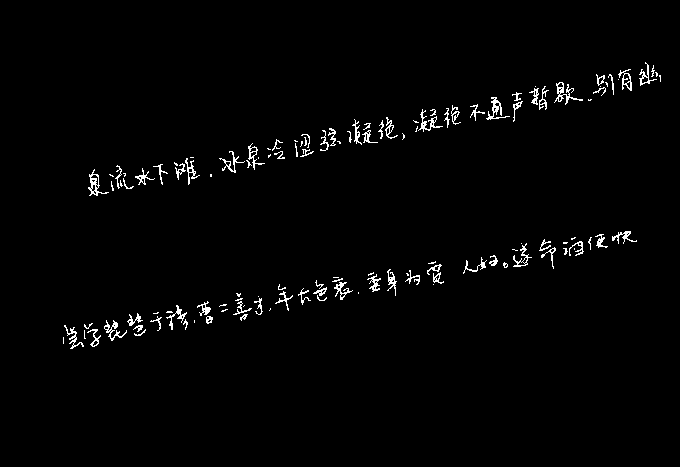 泉流水下滩.冰泉冷涩弦凝绝,凝绝不通声暂歇.别有幽
尝学琵琶于穆,曹二善才,年长色衰.委身为贾 人妇。遂命酒使快